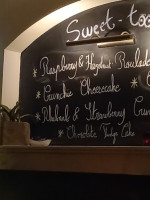 Sweet-too
* Raspberry & Hazelnut Roulade
* Crunchie Cheesecake
* Rhubarb & Strawberry Cru
* Chocolate Fudge Cake